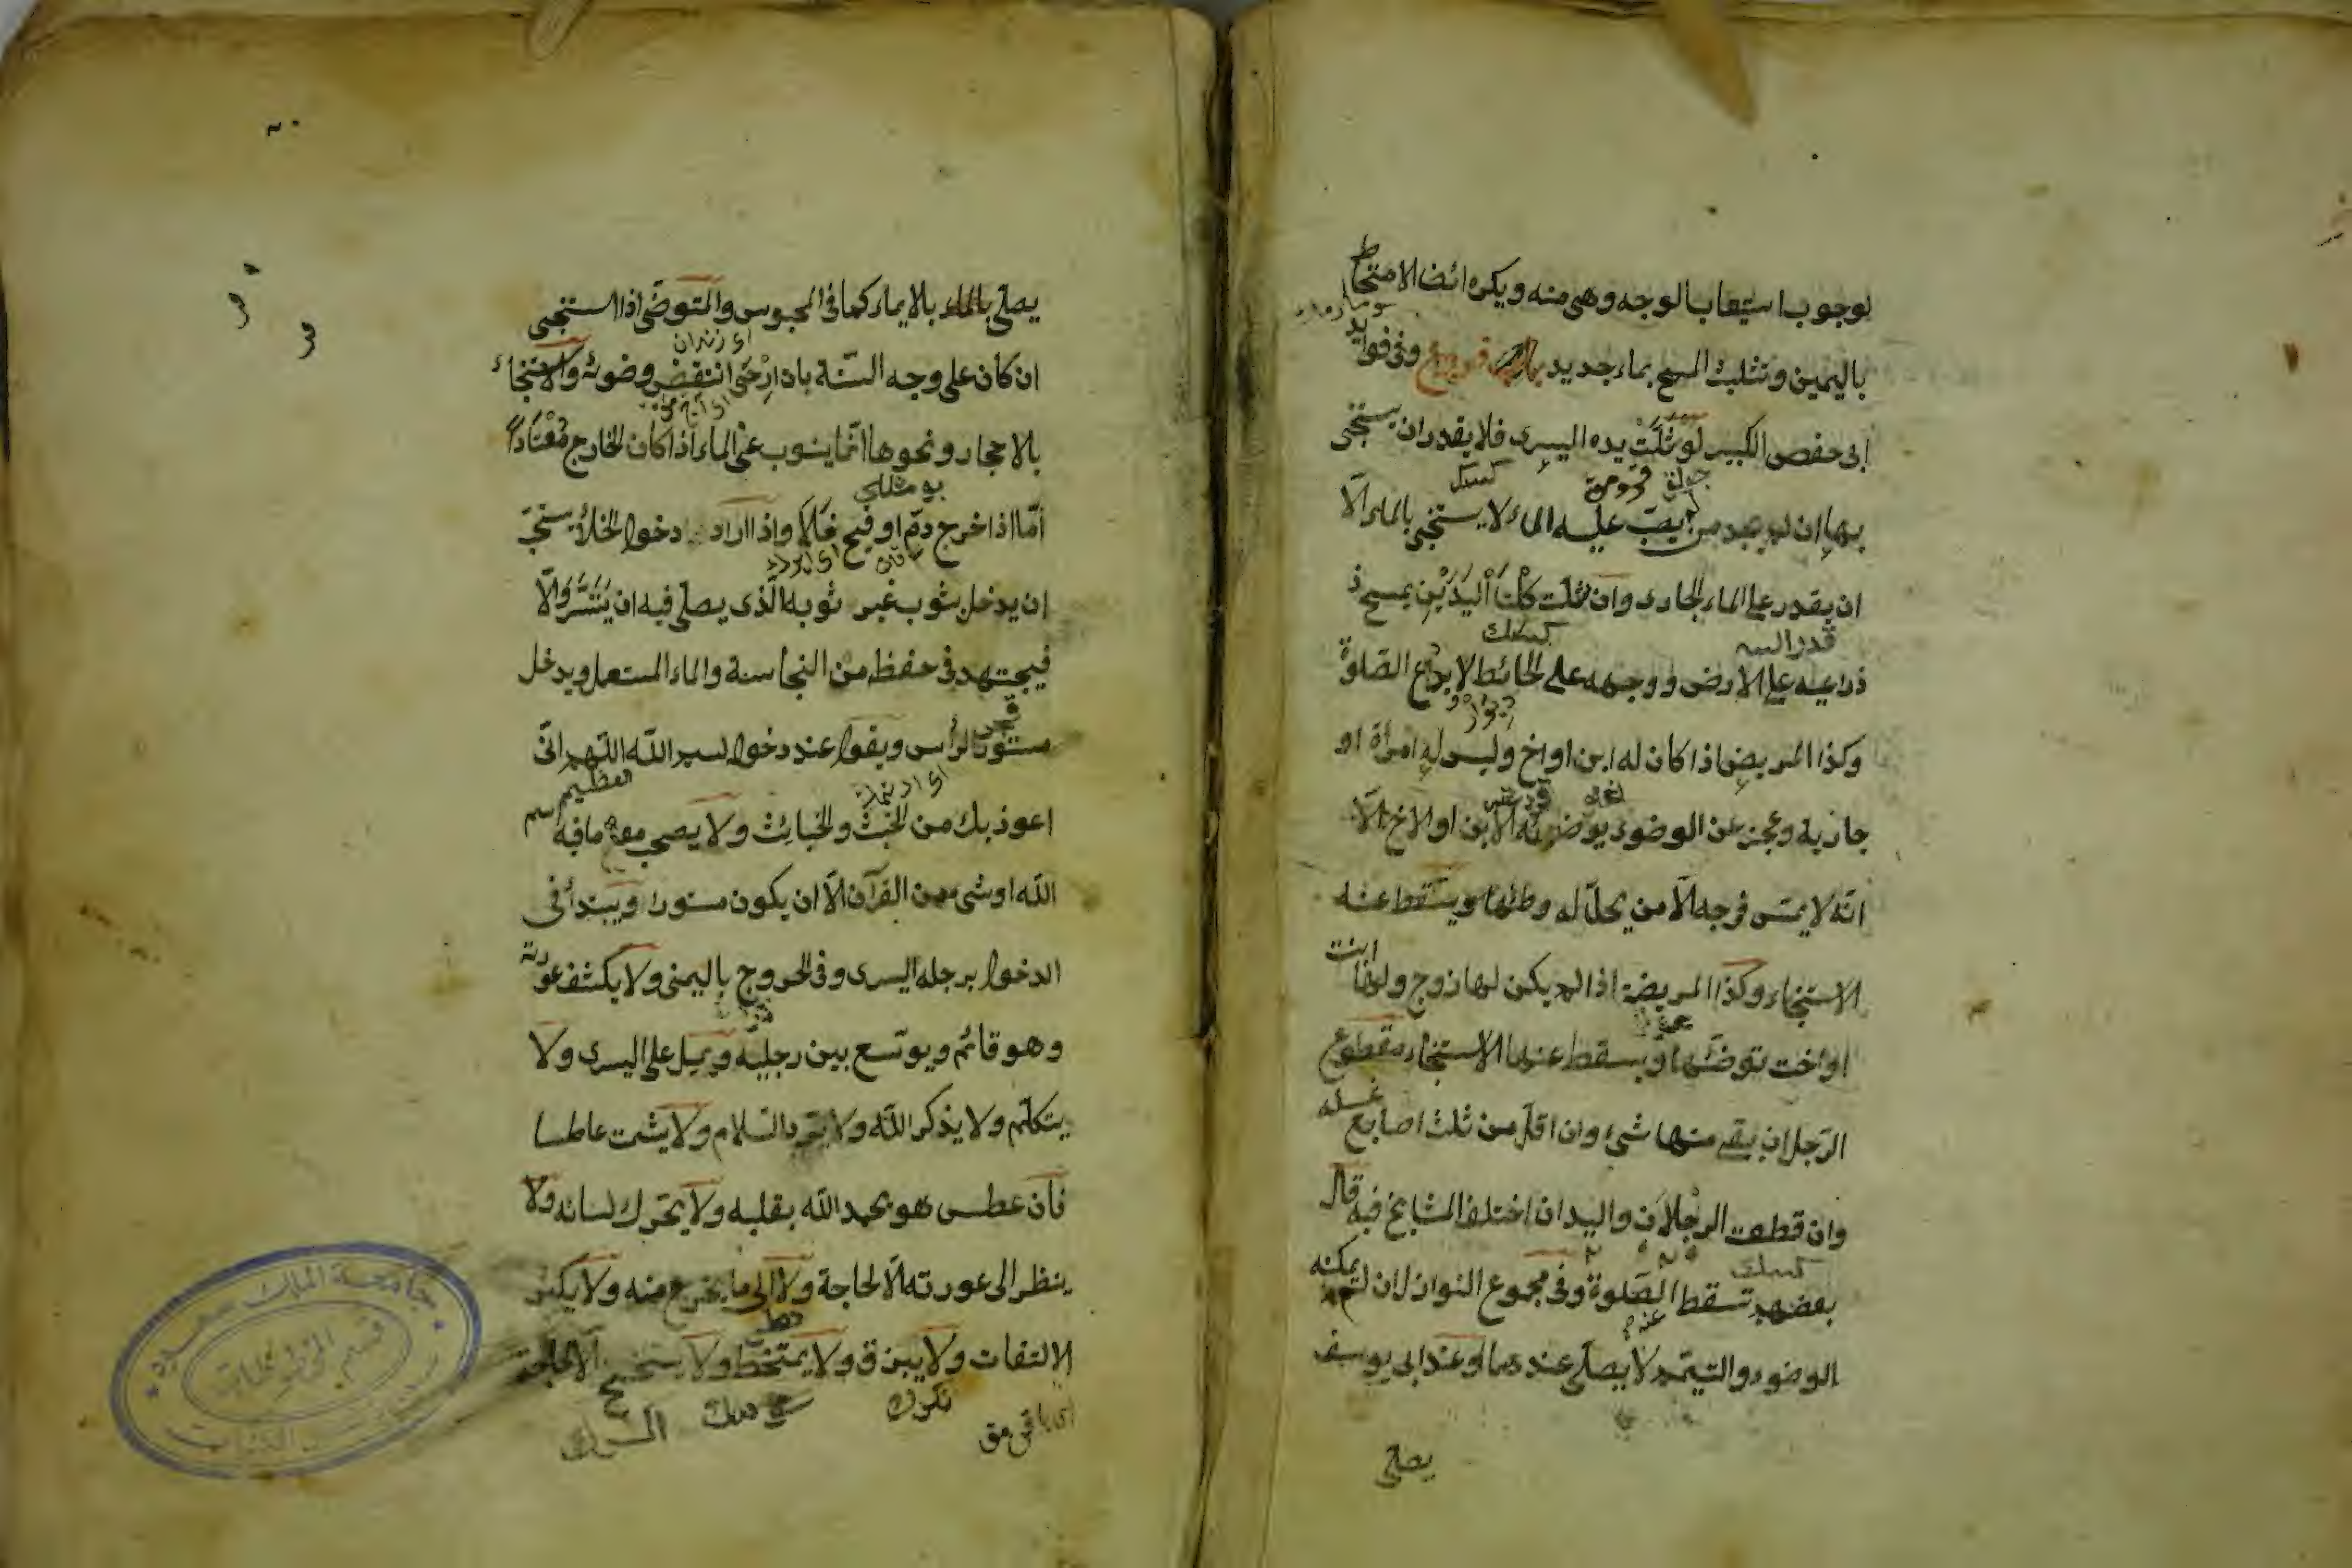 لوجوب استيعاب الوجه وهى منه ويكره ايضا الامتخاط
باليمين وتثليث المسح بماء جديد وفى فوايد
ابى حفص الكبير لو شلت يده اليسرى فلا يقدر ان يستنجى
بها ان لم يجد من يصب عليه الماء لا يستنجى بالماء الا
ان يقدر على الماء الجارى وان شلت كلتا اليدين يمسح ذ
ذراعيه على الارض ووجهه على الحائط لا يدع الصلوة
وكذا المريض اذا كان له ابن او اخ وليس له امرأة او
جارية وعجز عن الوضوء يوضئه الابن او الاخ الا
انه لا يمس فرجه الا من يحل له وطئها ويسقط عنه
الاستنجاء وكذا المريضة اذا لم يكن لها زوج ولها ابنت
او اخت توضئها ويسقط عنها الاستنجاء مقطوع
الرجل ان بقى منها شئ وان اقل من ثلث اصابع غسله
وان قطعت الرجلان واليدان اختلف المشايخ فيه قال
بعضهم تسقط الصلوة وفى مجموع النوازل ان لم يمكنه
الوضوء والتيمم لا يصلى عندهما وعند ابى يوسف
يصلى
يصلى بالايماء كما فى المحبوس والمتوضى اذا استنجى
ان كان على وجه السنة بان ارخى انتقض وضوئه والاستنجاء
بالاحجار ونحوها انما ينوب عن الماء اذا كان الخارج معتادا
اما اذا خرج دم او قيح فلا واذا اراد دخول الخلأ يستحب
ان يدخل بثوب غير ثوبه الذى يصلى فيه ان يتسر والا
فيجتهد فى حفظ من النجاسة والماء المستعمل ويدخل
مستور الرأس ويقول عند دخول بسم الله اللهم انى
العظيم
اعوذ بك من الخبث والخبائث ولا يصحب معه ما فيه اسم
الله او شئ من القرآن الا ان يكون مستورا ويبتدأ فى
الدخول برجله اليسرى وفى الخروج باليمنى ولا يكشف عورته
وهو قائم ويوسع بين رجليه ويميل على اليسرى ولا
يتكلم ولا يذكر الله ولا يرد السلام ولا يشمت عاطسا
فان عطس هو يحمد الله بقلبه ولا يحرك لسانه ولا
ينظر الى عورته الا لحاجة ولا الى ما يخرج منه ولا يكثر
الالتفات ولا يبزق ولا يمتخط ولا يتنحنح الا لحاجة
جامعة الملك سعود
قسم المخطوطات